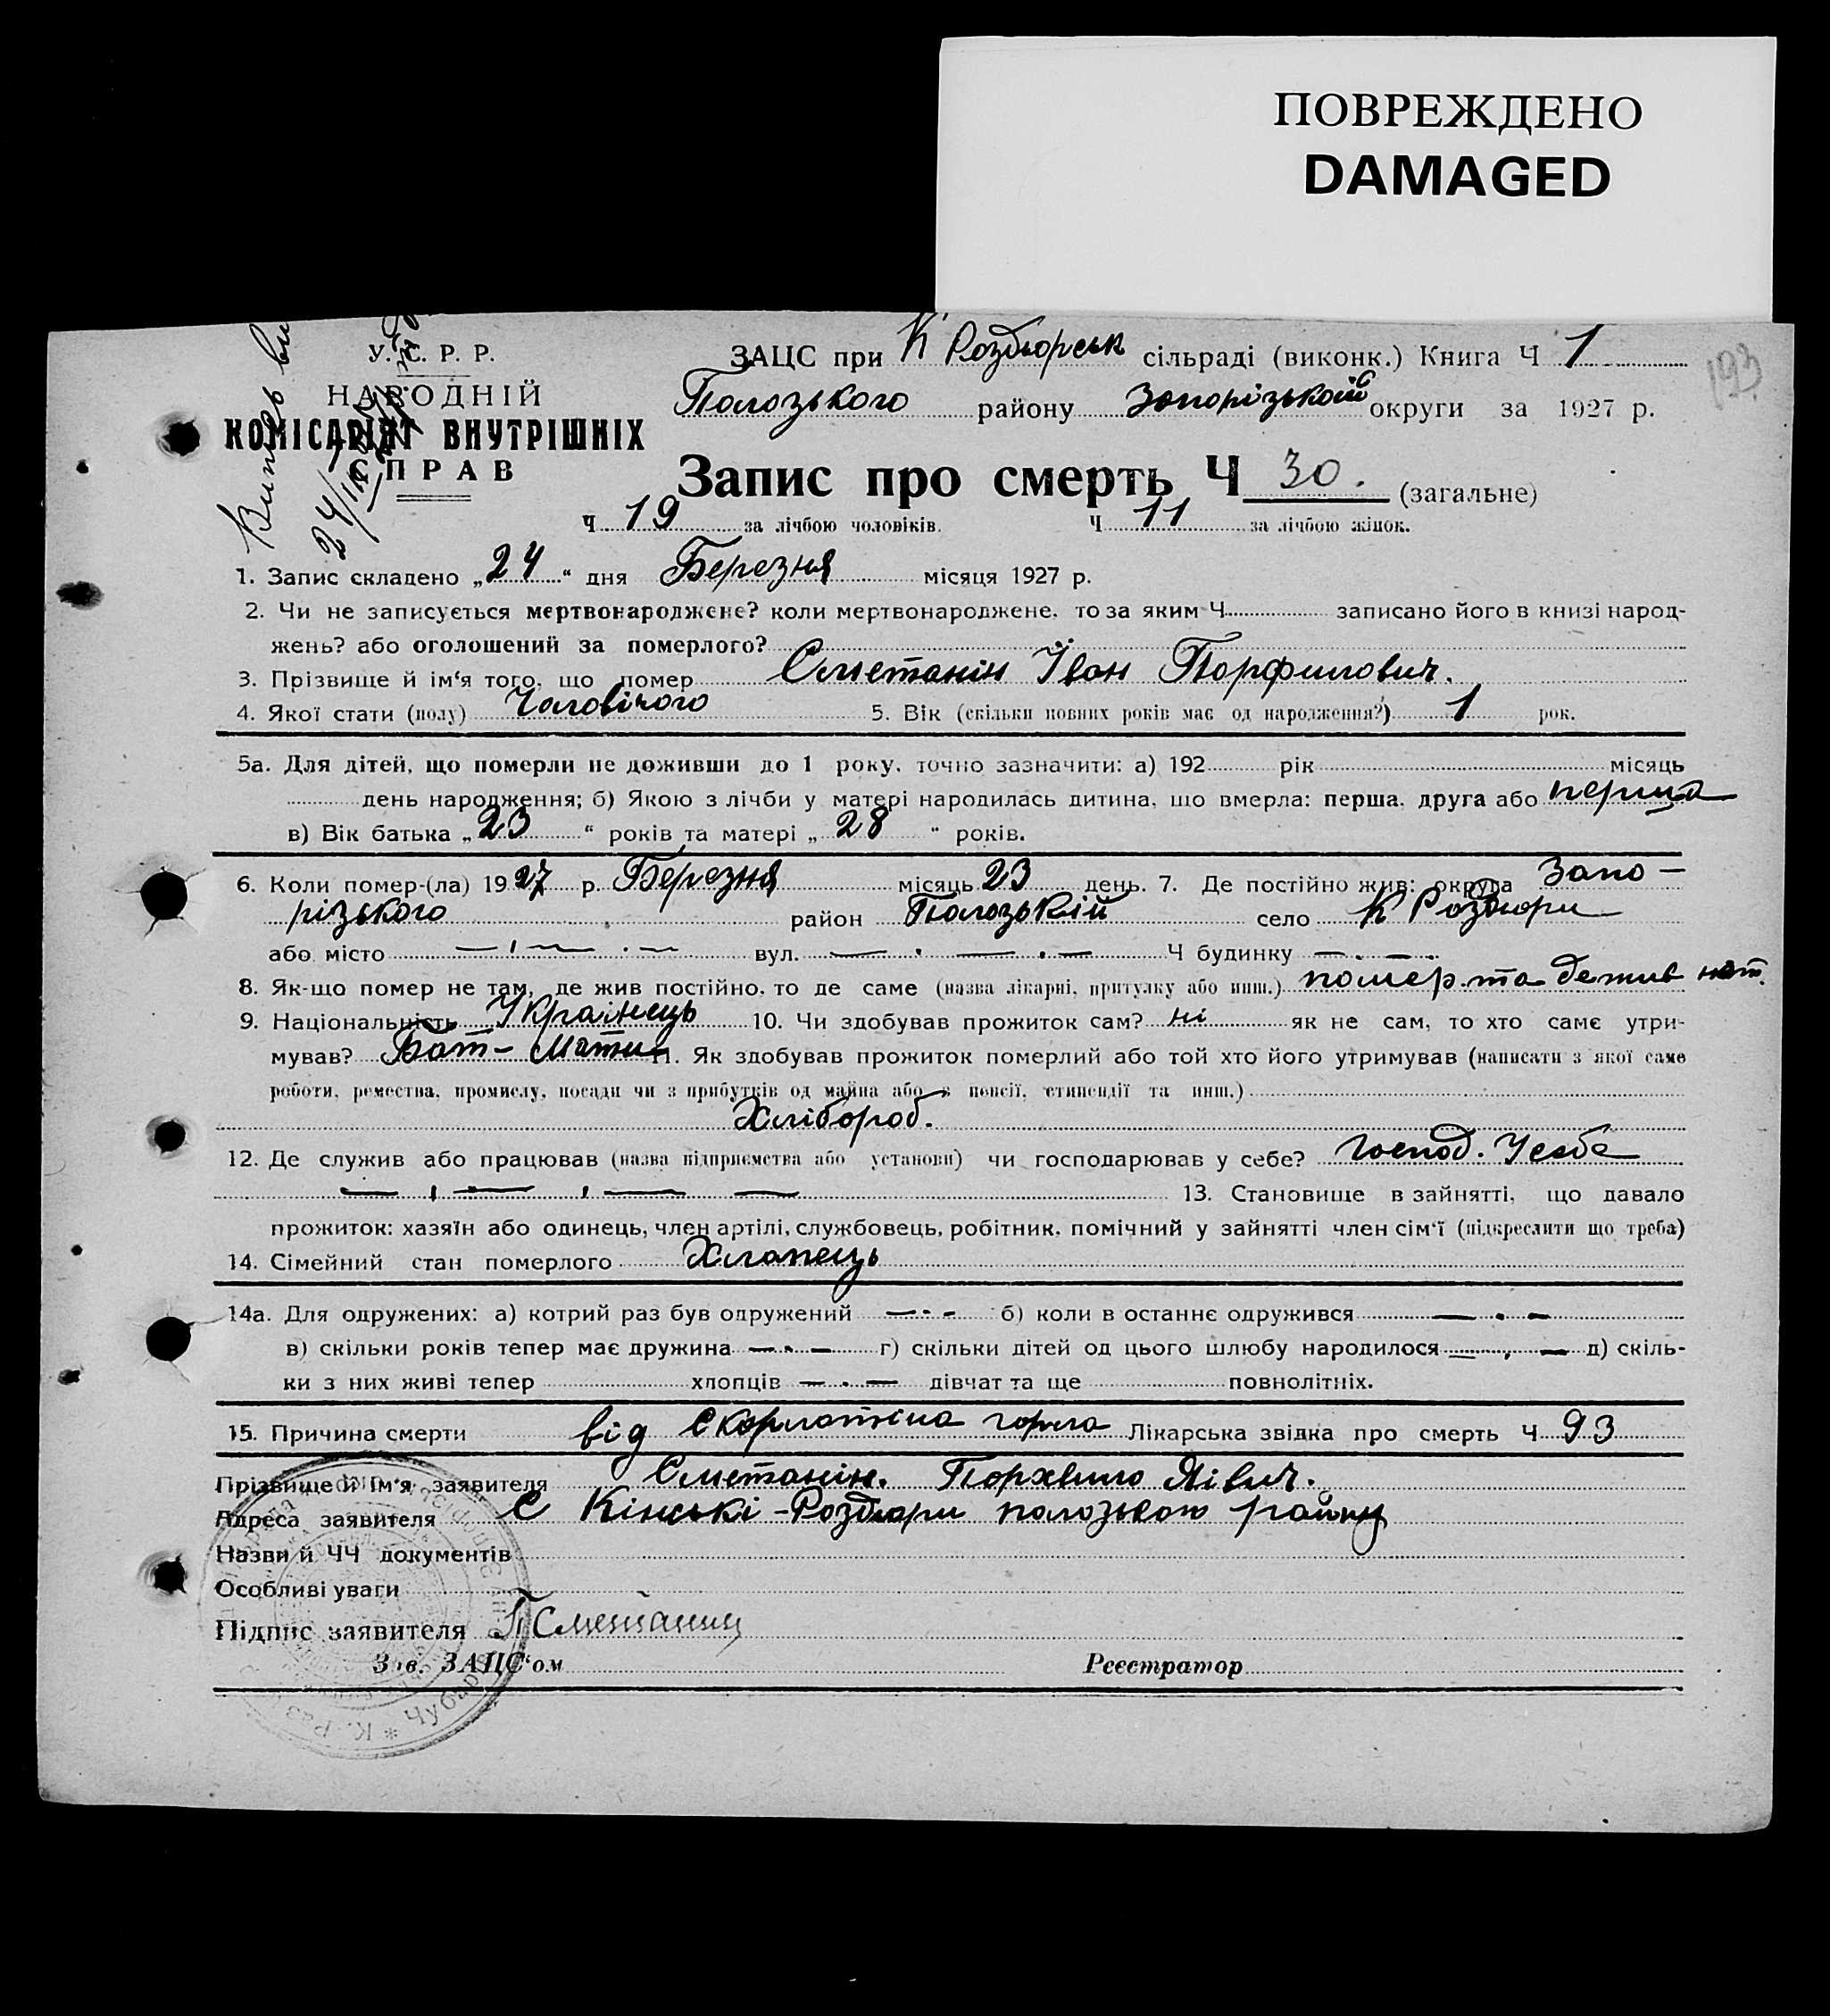 ПОВРЕЖДЕНО
DAMAGED
У. С. Р. Р.
НАРОДНІЙ
КОМІСАРІЯТ ВНУТРІШНІХ
СПРАВ
Випись
24/III
193
ЗАЦС при К Роздорськ сільраді (виконк.) Книга Ч 1
Пологзького району Запорізької округи за 1927 р.
Запис про смерть Ч 30. (загальне)
Ч 19 за лічбою чоловіків. Ч 11 за лічбою жінок.
1. Запис складено „24“ дня Березня місяця 1927 р.
2. Чи не записується мертвонароджене? коли мертвонароджене, то за яким Ч записано його в книзі народ-
жень? або оголошений за померлого?
3. Прізвище й ім‘я того, що помер Сметанін Іван Порфилович.
4. Якої стати (полу) Чоловічого 5. Вік (скільки повних років має од народження?) 1 рок.
5а. Для дітей, що померли не доживши до 1 року, точно зазначити: а) 192 рік місяць
день народження; б) Якою з лічби у матері народилась дитина, що вмерла: перша, друга або перша
в) Вік батька „23“ років та матері „28“ років.
6. Коли помер-(ла) 1927 р. Березня місяць 23 день. 7. Де постійно жив: округа Запо-
різького район Пологзькій село К Роздори
або місто вул. Ч будинку
8. Як-що помер не там, де жив постійно, то де саме (назва лікарні, притулку або инш.) помер та де жив
9. Національність Українець 10. Чи здобував прожиток сам? ні як не сам, то хто саме утри-
мував? Бат- Мати 11. Як здобував прожиток померлий або той хто його утримував (написати з якої саме
роботи, ремества, промислу, посади чи з прибутків од майна або з пенсії, стипендії та инш.)
Хлібороб.
12. Де служив або працював (назва підприємства або установи) чи господарював у себе? Господ. Усебе
13. Становище в зайнятті, що давало
прожиток: хазяїн або одинець, член артілі, службовець, робітник, помічний у зайнятті член сім‘ї (підкреслити що треба)
14. Сімейний стан померлого Хлопець
14а. Для одружених: а) котрий раз був одружений б) коли в останнє одружився
в) скільки років тепер має дружина г) скільки дітей од цього шлюбу народилося д) скіль-
ки з них живі тепер хлопців дівчат та ще повнолітніх.
15. Причина смерти від Скорлотіна горла Лікарська звідка про смерть Ч 93
Прізвище й ім‘я заявителя Сметанін.
Адреса заявителя С Кінські-Роздори пологзького району
Назви й ЧЧ документів
Особливі уваги
Підпис заявителя П Сметанин
Зав. ЗАЦС‘ом Реєстратор